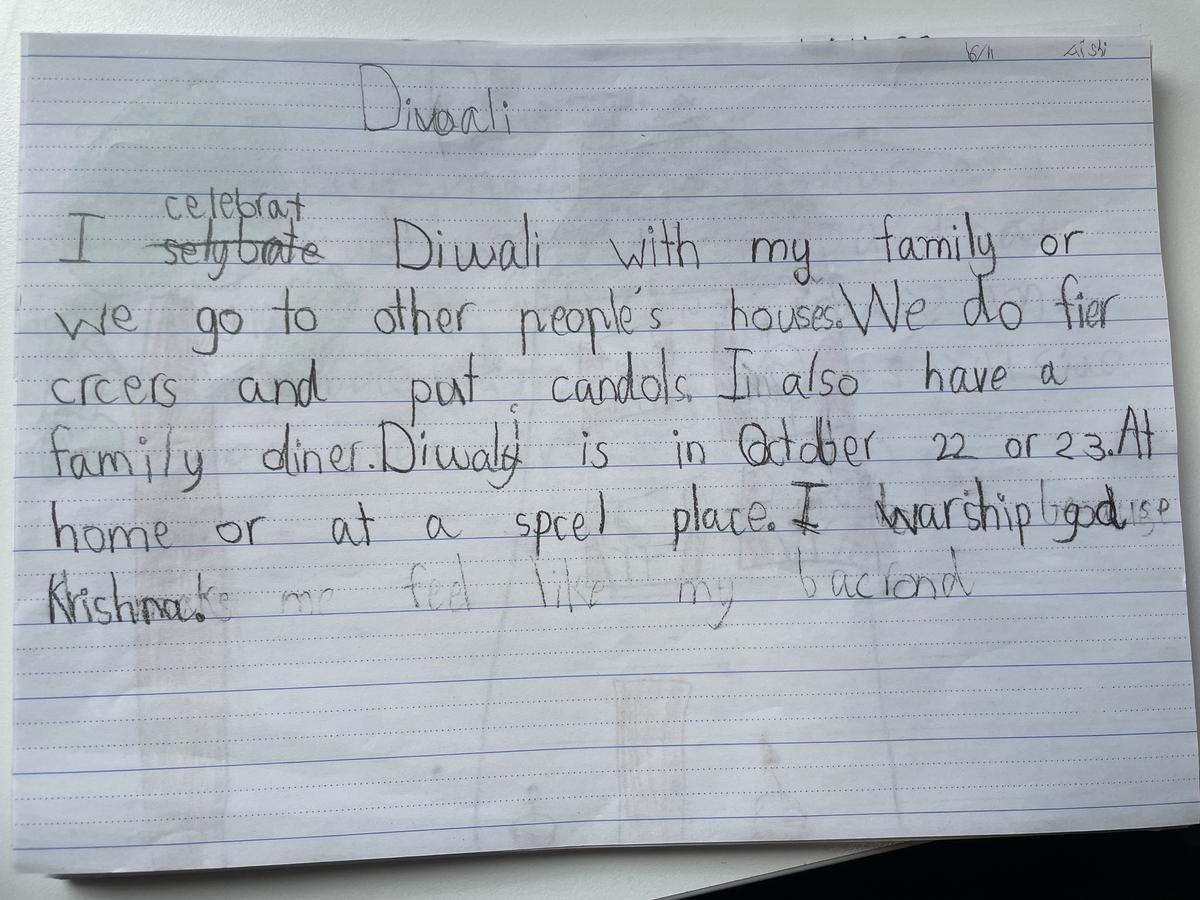 6/11 Aishi
Diwali
celebrat
I selybrate Diwali with my family or
we go to other people's houses. We do fier
crcers and put candols. I also have a
family diner. Diwali is in October 22 or 23. At
home or at a sprel place. I warship god
Krishna. me feel like my baclond